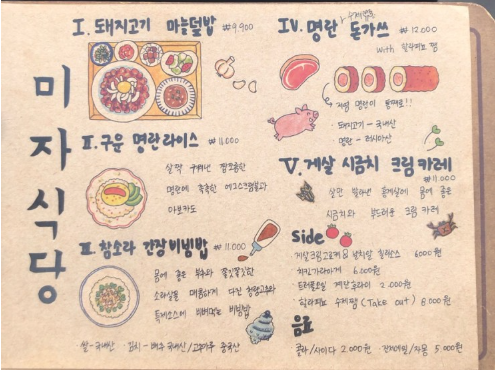 미자식당
I. 돼지고기 마늘덮밥 ₩9,900
II. 구운 명란 라이스 ₩11,000
살짝 구워낸 짭조름한
명란에 촉촉한 에그스크램블과
아보카도
III. 참소라 간장 비빔밥 ₩11,000
몸에 좋은 부추와 쫄깃쫄깃한
소라살을 매콤하게 다진 청양고추와
특제소스에 비벼먹는 비빔밥
쌀-국내산 김치-배추 국내산/고춧가루 중국산
IV. 명란 돈가쓰 ₩12,000
with 할라피뇨 잼
저염 명란이 통째로!!
· 돼지고기 - 국내산
명란 - 러시아산
V. 게살 시금치 크림 카레
₩11,000
살만 발라낸 홍게살에 몸에 좋은
시금치와 부드러운 크림 카레
Side
게살크림고로케 & 칠리소스 6000원
치킨가라아게 6,000원
트러플오일 계란후라이 2,000원
할라피뇨 수제잼 (Take out) 8,000원
음료
콜라/사이다 2,000원 자몽 5,000원